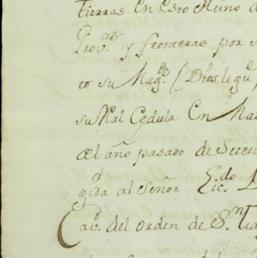 tierras En Este Reino d
Prov.as y fronteras por s
to su Mag.d (Dios le gue
su Real Cedula En Ma
del año pasado de Setec
gida al Señor Lic.do
Cav.o del orden de S.n tia